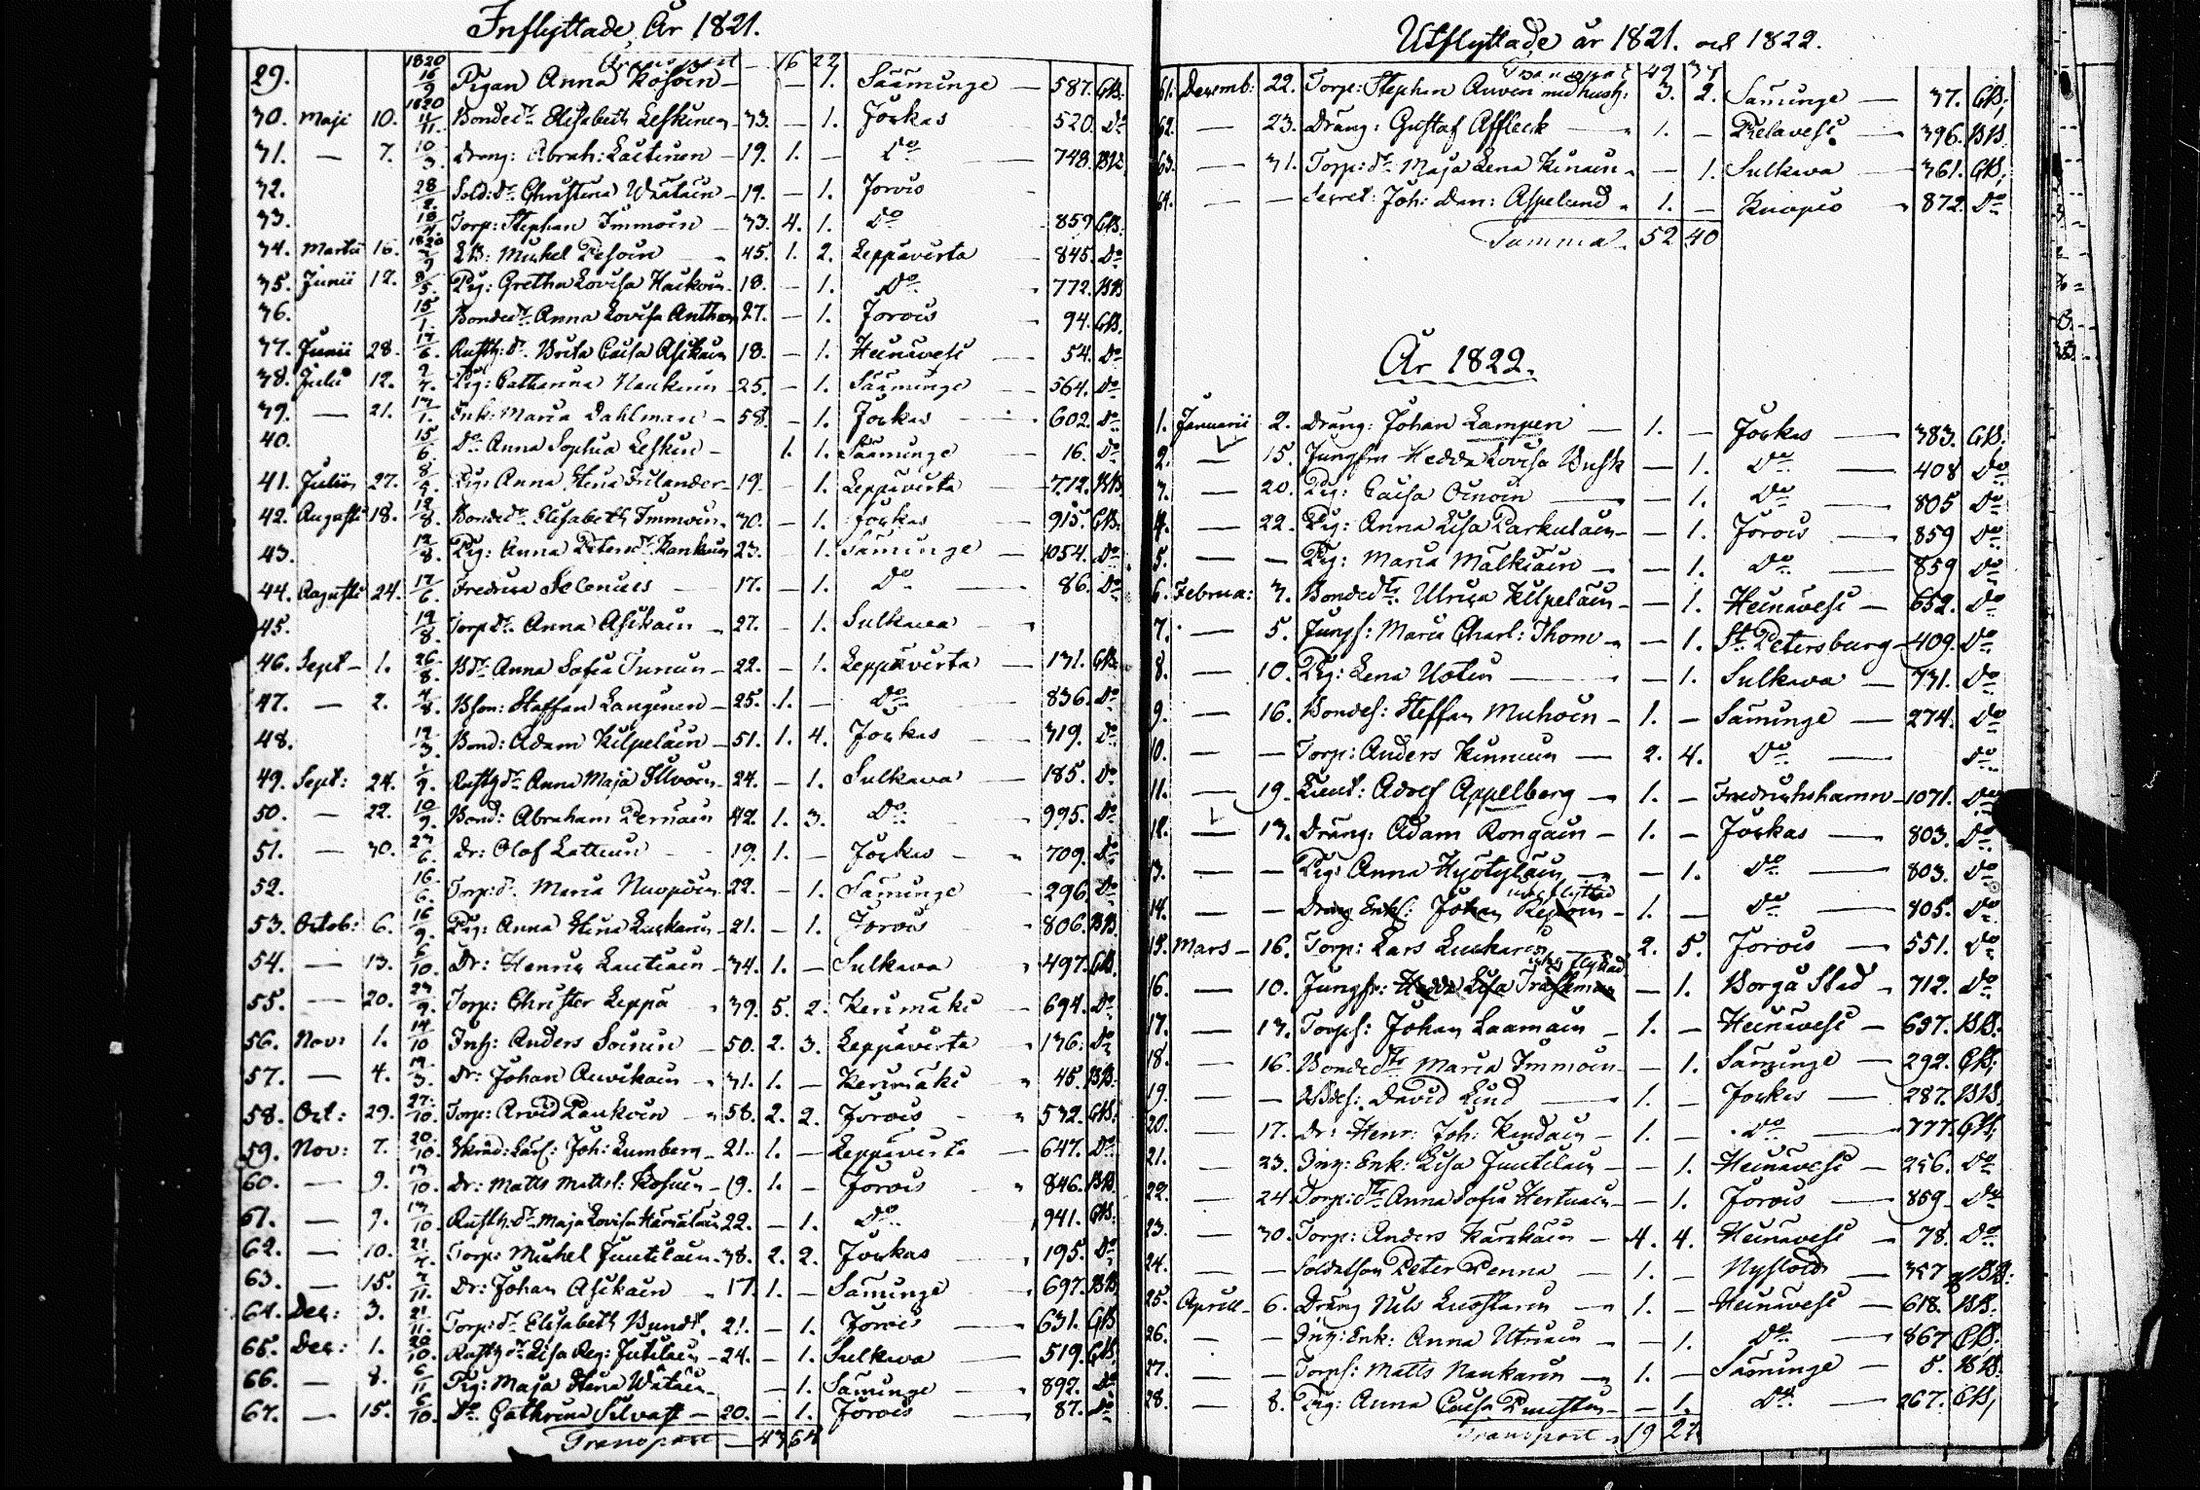 Inflyttade År 1821.
Transport — 16 22
29. 1820 16/9 Pigan Anna Kosoin — — 1. Sääminge — 587. GB.
30. Maji 10. 1820 11/11. Bondedr. Elisabeth Leskinen — 33. — 1. Jockas 520. Do
31. — 7. 10/3. Dreng: Abrah: Lactinen — 19. 1. — Do — 748. BB
32. 28/2. Sold: dr. Christina Wätäin — 19. — 1. Jorois
33. 18/4. Torp: Stephan Immoin — 33. 4. 1. Do 859 GB.
34. Martii 16. 1820 2/9 LB: Michel Pesoin — 45. 1. 2. Leppävirta 845. Do
35. Junii 12. 8/5. Pig: Gretha Lovisa Haikoin — 18. — 1. Do 772. BB
36. 15/1. Bondedr. Anna Lovisa 27. — 1. Jorois 94. GB.
37. Junii 28. 17/6. Rusth: dr. Brita Caisa Asikain 18. — 1. Heinävesi — 54. Do
38. Julii 12. 2/7. Pig: Catharina Haukinen — 25. — 1. Sääminge — 564. Do
39. — 21. 17/1. Inh: Maria Dahlman — 58. — 1. Jockas — 602. Do
40. 15/6. Do Anna Sophia Leskin — 1. 1. Sääminge 16. Do
41. Julii 27. 8/7. Pig: Anna Stina Frilander — 19. — 1. Leppävirta — 712. BB.
42. Augusti 18. 12/8. Bondedr. Elisabeth Immoin. 30. — 1. Jockas 915. GB.
43. 12/8. Pig: Anna Petersdr. Kankuin 23. — 1. Säminge — 1054. Do
44. Augusti 24. 17/6. Fredrica Selenius — 17. — 1. Do — 86. Do
45. 19/8. Torpdr. Anna Asikain — 27. — 1. Sulkava —
46. Sept — 1. 26/8. Bdr. Anna Sofia Turuin — 22. — 1. Leppävirta — 131. GB.
47. — 2. 4/8. Bson: Staffan Laugenen — 25. 1. — Do 836. Do
48. 12/3. Bond: Adam Kilpeläin — 51. 1. 4. Jockas — 319. Do
49. Sept: 24. 1/9. Rusth dr. Anna Maja Ilvoin — 24. — 1. Sulkava — 185. Do
50. — 22. 10/9. Bond: Abraham Pernäin 42. 1. 3. Do 995. Do
51. — 30. 23/6. Dr: Olof Lattuin 19. 1. — Jockas — 709. Do
52. 16/6. Torp: d. Maria Nuopoin 22. — 1. Säminge — 296. Do
53. Octob: 6. 16/9. Pig: Anna Stina Luckarin — 21. — 1. Jorois 806. BB.
54. — 13. 6/10. Dr: Henric Lautiain — 34. 1. — Sulkava 497. GB.
55. — 20. 23/9. Torp: Christer Leppä 39. 5. 2. Kerimäki — 694. Do
56. Nov: 1. 14/10 Inh: Anders Soinin — 50. 2. 3. Leppävirta — 136. Do
57. — 4. 19/3. Dr: Johan Auvikain 31. 1. — Kerimäki 45. BB.
58. Oct: 29. 27/10. Torp: Arvid Laukoin 58. 2. 2. Jorois 532. GB.
59. Nov: 7. 20/10. Skräd: Lärl: Joh: Lumberg — 21. 1. — Leppävirta 647. Do
60. — 9. 13/10. Dr: Matts Mattsl: Kosuin — 19. 1. — Jorois 846. BB.
61. — 9. 13/10. Rusth: dr. Maja Lovisa 22. — 1. Do 941. GB.
62. — 10. 21/4. Torp: Michel Juutilain — 38. 2. 2. Jockas 195. Do
63. — 15. 4/11. Dr: Johan Asikain 17. 1. — Säminge 697. BB
64. Dec: 3. 21/11. Torp: dr. Elisabeth 21. — 1. Jorois 631. GB
65. Dec: 1. 20/10. Rusth dr. Lisa Reg: Jutilain — 24. — 1. Sulkava 519. GB.
66. — 8. 6/11 Pig: Maja Stina Wätäin — — 1. Säminge 892. Do
67. — 15. 6/10. Do Cathrina Silvast — 20. — 1. Jorois 87. Do
Transport — 43 64
Utflyttade år 1821. och 1822.
Transport 49 37
61. Decemb: 22. Torp: Stephan Auvin med hust: 3. 2. Säminge — 37. GB,
62. — 23. Dräng: Gustaf Affleck — 1. — Pielavesi — 396. BB.
63. — 31. Torp: dr. Maja Lena Kinuin — — 1. Sulkava — 361. GB,
64. — — Secret: Joh: Dan: Aspelund 1. — Kuopio 872. Do
Summa 52 40
År 1822.
1. Januarii 2. Dräng: Johan Lampen — 1. — Jockas — 383. GB.
2. — 15. Jungfru Hedda Lovisa Busk — 1. Do — 408 Do
3. — 20. Pig: Caisa Oinoin — — 1. Do — 805 Do
4. — 22. Pig: Anna Lisa Parkulain — — 1. Jorois — 859 Do
5. — — Pig: Maria Malkiäin — — 1. Do — 859 Do
6. Februa: 3. Bondedtr. Ulrica Kilpeläin — — 1. Heinävesi — 652. Do
7. — 5. Jungf: Maria Charl: Thom — — 1. St. Petersburg — 409. Do
8. — 10. Pig: Lena Uotin — — 1. Sulkava — 731. Do
9. — 16. Bondes: Steffan Muhoin — 1. — Säminge — 274. Do
10. — — Torp: Anders Kinnuin — 2. 4. Do — Do
11. — 19. Lieut: Adolf Appelberg — 1. — Fredrichshamn — 1071. Do
12. — 13. Dräng: Adam Rongain — 1. — Jockas — 803. Do
13. — — Pig: Anna Hyötyläin — — 1. Do — 803. Do
14. — — Dräng Enkl: Johan 1. — Do — 805. Do
15. Mars — 16. Torp: Lars Luckarin 2. 5. Jorois — 551. Do
16. — 10. Jungfr: Hedda Lisa Träskman — 1. Borgå Stad 712. Do
17. — 13. Torps: Johan Laamain — 1. — Heinävesi — 697. BB.
18. — 16. Bondedtr. Maria Immoin — — 1. Säminge — 292. GB,
19. — — David Lind — 1. — Jockas — 287. BB.
20. — 17. Dr: Henr: Joh: Kindain — 1. — Do — 777. GB,
21. — 23. Inh: Enk: Lisa Juutilain — — 1. Heinävesi — 256. Do
22. — 24. Torp: dtr. Anna Sofia Hertuain — — 1. Jorois — 859 Do
23. — 30. Torp: Anders Karhkain — 4. 4. Heinävesi — 78. Do
24. — — Soldatson Peter Penna — 1. — Nyslott 357 BB.
25. Aprill — 6. Dräng Nils Luostarin — 1. — Heinävesi — 618. BB.
26. — — Inh: Enk: Anna Utriain — — 1. Do — 867 GB,
27. — — Torps: Matts Naukarin — 1. — Säminge — 5. BB.
28. — 8. Pig: Anna Caisa — — 1. Do — 267. GB,
Transport 19 27